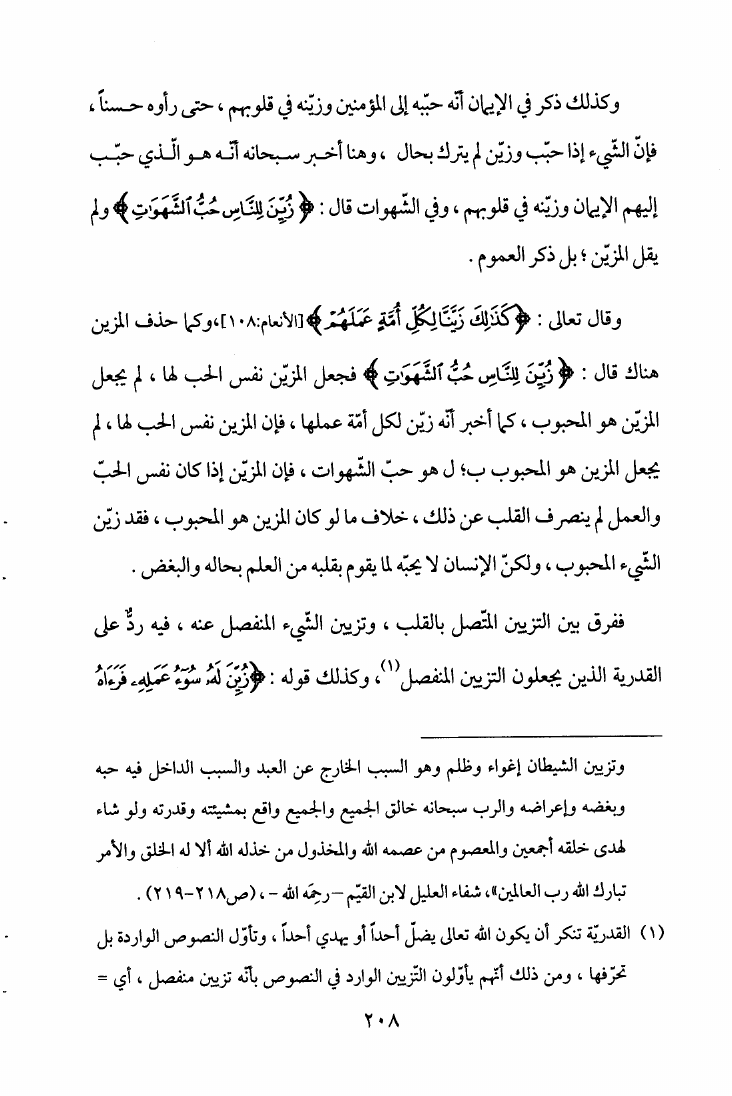 وكذلك ذكر في الإيمان أنّه حبّبه إلى المؤمنين وزيّنه في قلوبهم ، حتى رأوه حسناً ،
فإنّ الشّيء إذا حبّب وزيّن لم يترك بحال ، وهنا أخبر سبحانه أنّه هو الّذي حبّب
إليهم الإيمان وزيّنه في قلوبهم ، وفي الشّهوات قال : ﴿ زُيِّنَ لِلنَّاسِ حُبُّ ٱلشَّهَوَٰتِ ﴾ ولم
يقل المزيّن ؛ بل ذكر العموم .
وقال تعالى : ﴿ كَذَٰلِكَ زَيَّنَّا لِكُلِّ أُمَّةٍ عَمَلَهُمْ ﴾ [الأنعام:١٠٨]، وكما حذف المزين
هناك قال : ﴿ زُيِّنَ لِلنَّاسِ حُبُّ ٱلشَّهَوَٰتِ ﴾ فجعل المزيّن نفس الحب لها ، لم يجعل
المزيّن هو المحبوب ، كما أخبر أنّه زيّن لكل أمّة عملها ، فإن المزين نفس الحب لها ، لم
يجعل المزين هو المحبوب ب؛ ل هو حبّ الشّهوات ، فإن المزيّن إذا كان نفس الحبّ
والعمل لم ينصرف القلب عن ذلك ، خلاف ما لو كان المزين هو المحبوب ، فقد زيّن
الشّيء المحبوب ، ولكنّ الإنسان لا يحبّه لما يقوم بقلبه من العلم بحاله والبغض .
ففرق بين التزيين المتّصل بالقلب ، وتزيين الشّيء المنفصل عنه ، فيه ردٌّ على
القدرية الذين يجعلون التزيين المنفصل(١)، وكذلك قوله : ﴿ زُيِّنَ لَهُۥ سُوٓءُ عَمَلِهِۦ فَرَءَاهُ
وتزيين الشيطان إغواء وظلم وهو السبب الخارج عن العبد والسبب الداخل فيه حبه
وبغضه وإعراضه والرب سبحانه خالق الجميع والجميع واقع بمشيئته وقدرته ولو شاء
لهدى خلقه أجمعين والمعصوم من عصمه الله والمخذول من خذله الله ألا له الخلق والأمر
تبارك الله رب العالمين»، شفاء العليل لابن القيّم –رحمَه الله – ، (ص٢١٨-٢١٩) .
(١) القدريّة تنكر أن يكون الله تعالى يضلّ أحداً أو يهدي أحداً ، وتأوّل النصوص الواردة بل
تحرّفها ، ومن ذلك أنّهم يأوّلون التّزيين الوارد في النصوص بأنّه تزيين منفصل ، أي =
٢٠٨